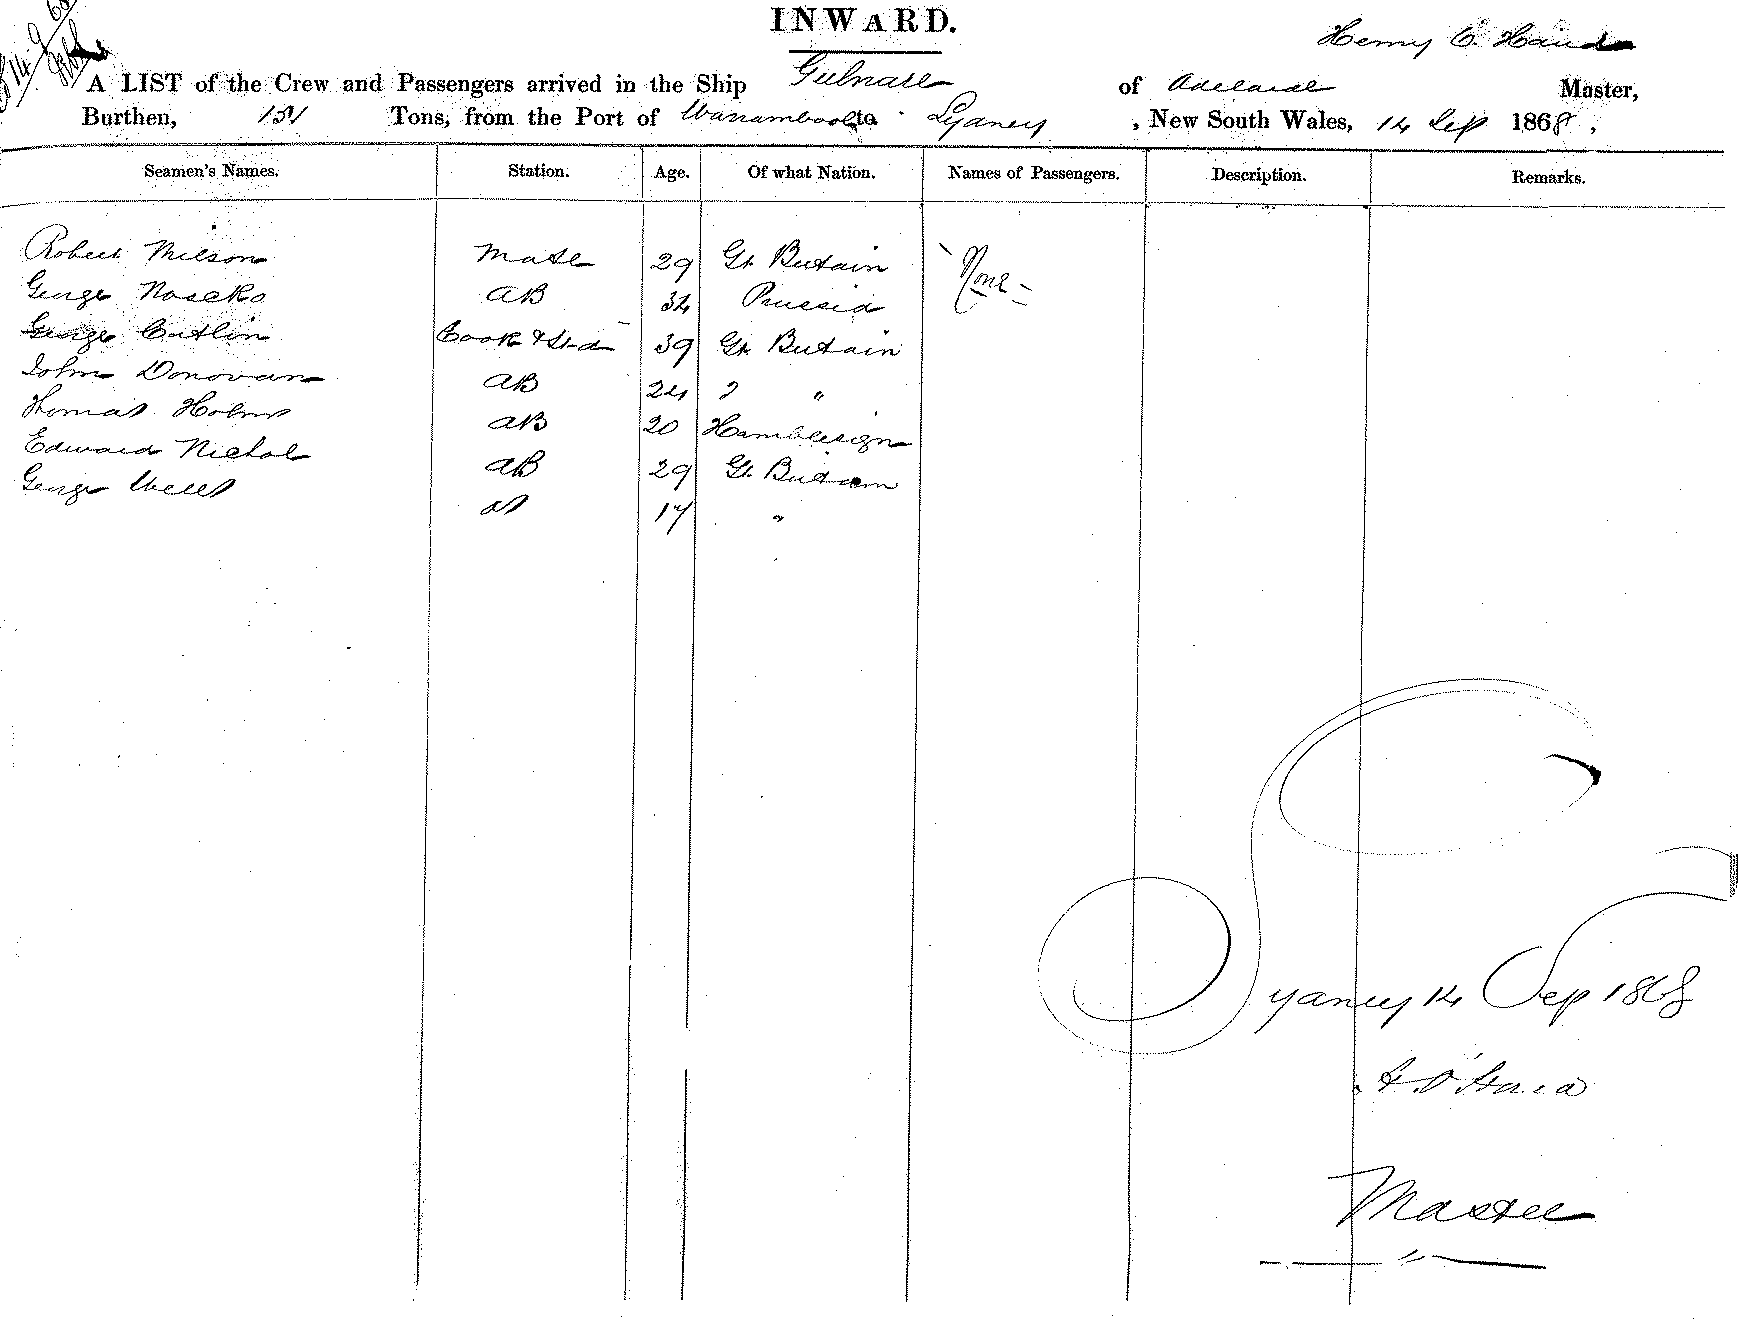 INWARD.
Henry C.
A LIST of the Crew and Passengers arrived in the Ship Gulnare of Adelaide Master,
Burthen, 131 Tons, from the Port of Warrambool to Sydney, New South Wales, 14 Sep 1868,
Seamen's Names. Station. Age. Of what Nation. Names of Passengers. Description. Remarks.
Robert Milson Mate 29 Gt. Britain None
George AB 34 Prussia
George Catlin Cook & Std 39 Gt. Britain
John Donovan AB 24 " "
Thomas Holms AB 20
Edward Nichol AB 29 Gt. Britain
George Wells OS 17 "
Sydney 14 Sep 1868
Master